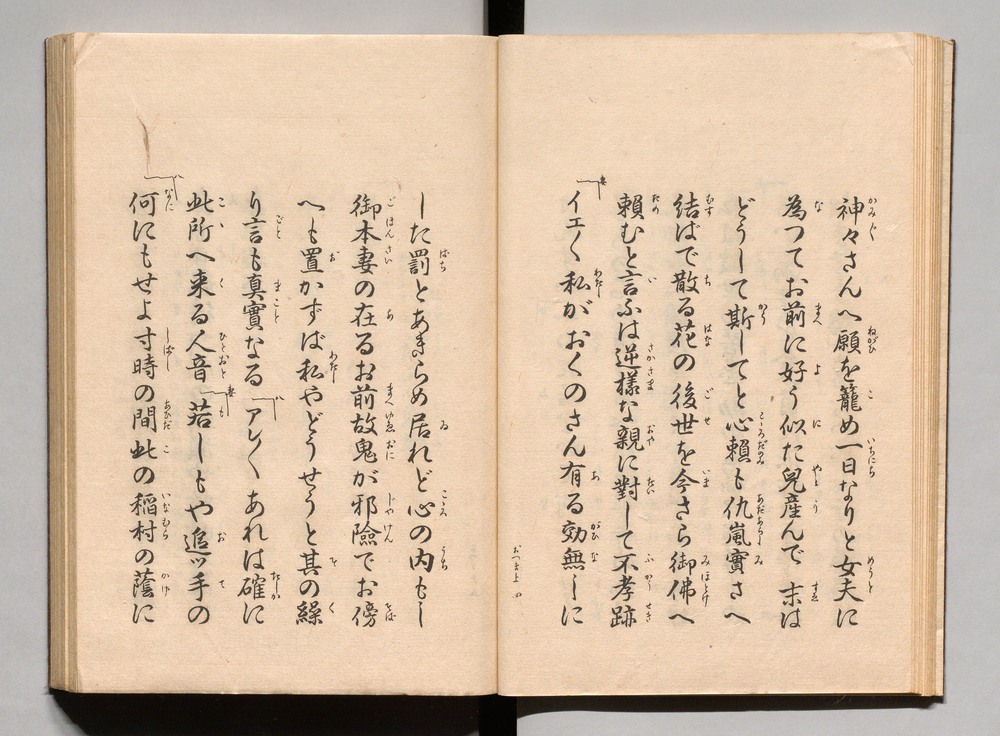 神々さんへ願を籠め一日なりと女夫に
為つてお前に好う似た兒産んで 末は
どうして斯してと心頼も仇嵐實さへ
結ばで散る花の後世を今さら御佛へ
頼むと言ふは逆様な親に對して不孝跡
イエ〱私がおくのさん有る効無しに
した罰とあきらめ居れど心の内もし
御本妻の在るお前故鬼が邪險でお傍
へも置かずば私やどうせうと其の繰
り言も真實なる アレ〱あれは確に
此所へ来る人音 若しもや追ッ手の
何にもせよ寸時の間此の稲村の蔭に